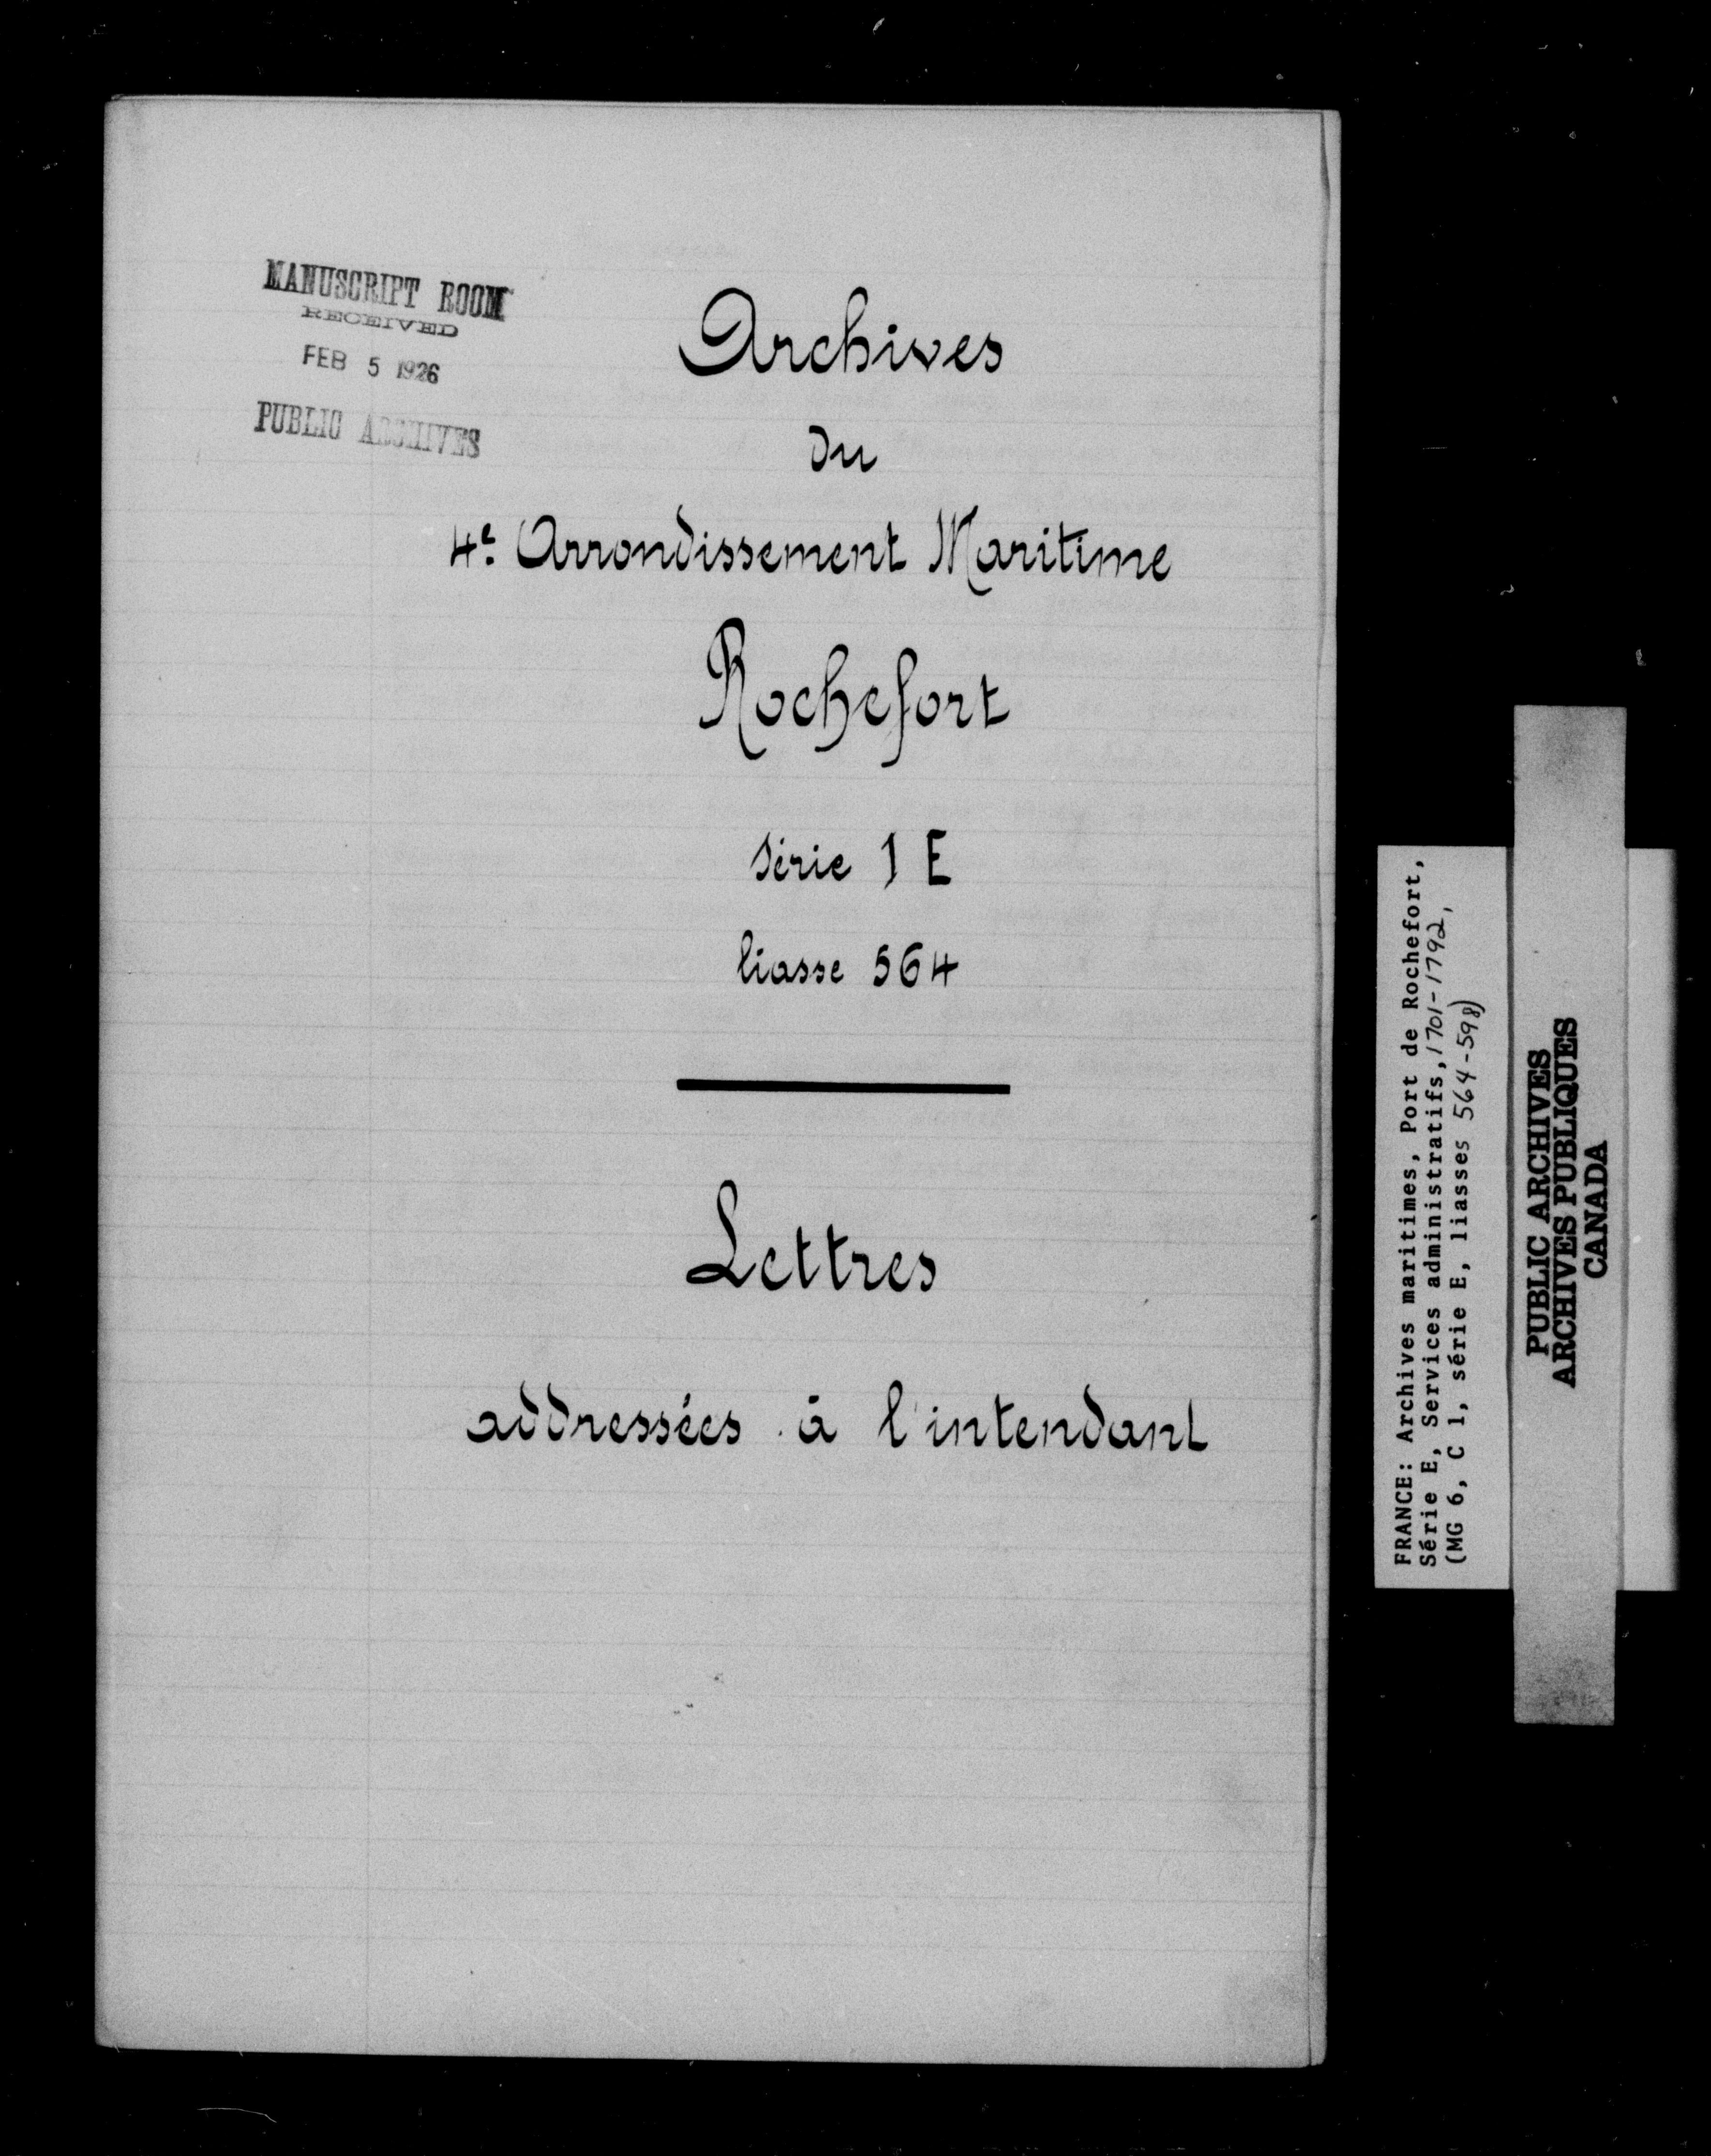 MANUSCRIPT ROOM
RECEIVED
FEB 5 1926
PUBLIC ARCHIVES
Archives
du
4e. Arrondissement Maritime
Rochefort
Série 1 E
liasse 564
Lettres
addressées à l'intendant
FRANCE: Archives maritimes, Port de Rochefort,
Série E, Services administratifs, 1701-1792,
(MG 6, C 1, série E, liasses 564-598)
PUBLIC ARCHIVES
ARCHIVES PUBLIQUES
CANADA